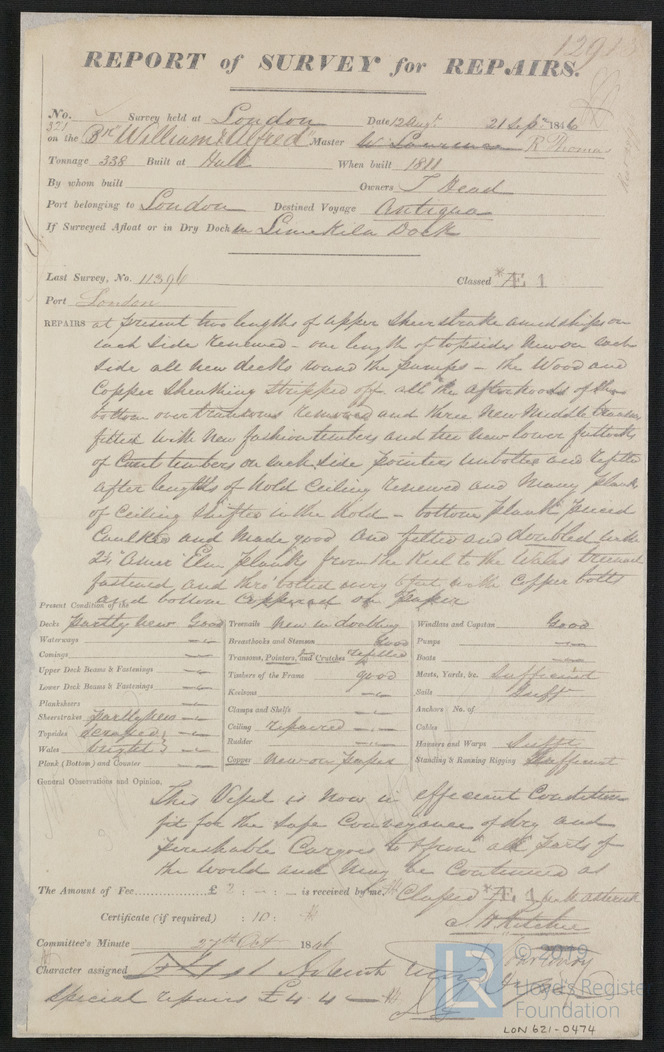 REPORT of SURVEY for REPAIRS.
No. 321 Survey held at London Date 12 Augt. 21 Sept. 1846
on the Bk "William & Alfred" Master W. Lawrence R Thomas
Tonnage 338 Built at Hull When built 1811
By whom built Owners T Head
Port belonging to London Destined Voyage Antigua
If Surveyed Afloat or in Dry Dock in Limekiln Dock
Last Survey, No. 11396 Classed *Æ 1
Port London
REPAIRS at present two lengths of upper Sheerstrake amidships on
each side renewed - one length of topsides new on each
side all new decks round the pumps - the Wood and
Copper Sheathing stripped off all the afterhoods of the
bottom over transoms removed and three new Middle transoms
fitted with new fashion timbers and two new lower futtocks
of Cant timbers on each side pointers unbolted and refitted
after lengths of hold Ceiling renewed and Many planks
of Ceiling Shifted in the hold - bottom plank forced
Caulked and made good and felted and doubled with
2½ Amer Elm planks from the Keel to the Wales treenail
fastened and thro' bolted every 6 feet with Copper bolts
and bottom Coppered on paper
Present Condition of the
Decks Partly new Good
Waterways
Comings
Upper Deck Beams & Fastenings
Lower Deck Beams & Fastenings
Planksheers
Sheerstrakes Partly new
Topsides scraped
Wales bright
Plank (Bottom) and Counter
Treenails New in doubling
Breasthooks and Stemson Good
Transoms, Pointers, and Crutches refitted
Timbers of the Frame good
Keelsons
Clamps and Shelfs
Ceiling repaired
Rudder
Copper new on paper
Windlass and Capstan Good
Pumps
Boats
Masts, Yards, &c. Sufficient
Sails Sufft
Anchors No. of
Cables
Hawsers and Warps Sufft
Standing & Running Rigging Sufficient
General Observations and Opinion.
This Vessel is now in efficient Condition
fit for the safe Conveyance of dry and
perishable Cargoes to & from all parts of
the World and may be Continued as
The Amount of Fee £ 2 : - : - is received by me, Classed *Æ 1 with asterisk
Certificate (if required) : 10 : J H Ritchie
Committee's Minute 27th Oct 1846
Character assigned
Special repairs £4.4
© 2019
LR
Lloyd's Register
Foundation
LON 621-0474